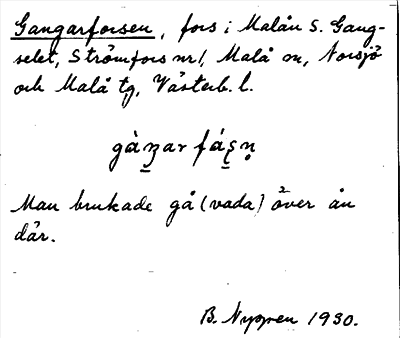 Gangarforsen, fors i Malån S. Gang-
selet, Strömfors nr 1, Malå sn, Norsjö
och Malå tg, Västerb. l.
gàŋar fá
Man brukade gå (vada) över ån
där.
B. Nygren 1930.